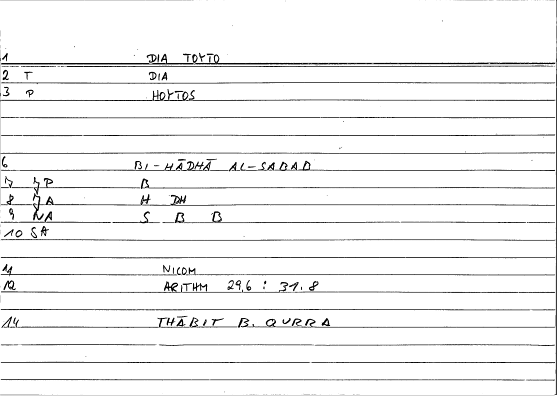 1 DIA TOYTO
2 T DIA
3 P HOYTOS
6 BI-HĀDHĀ AL-SABAB
7 JP B
8 JA H DH
9 NA S B B
10 SA
11 NICOM
12 ARITHM 29,6 : 31.8
14 THĀBIT B. QURRA